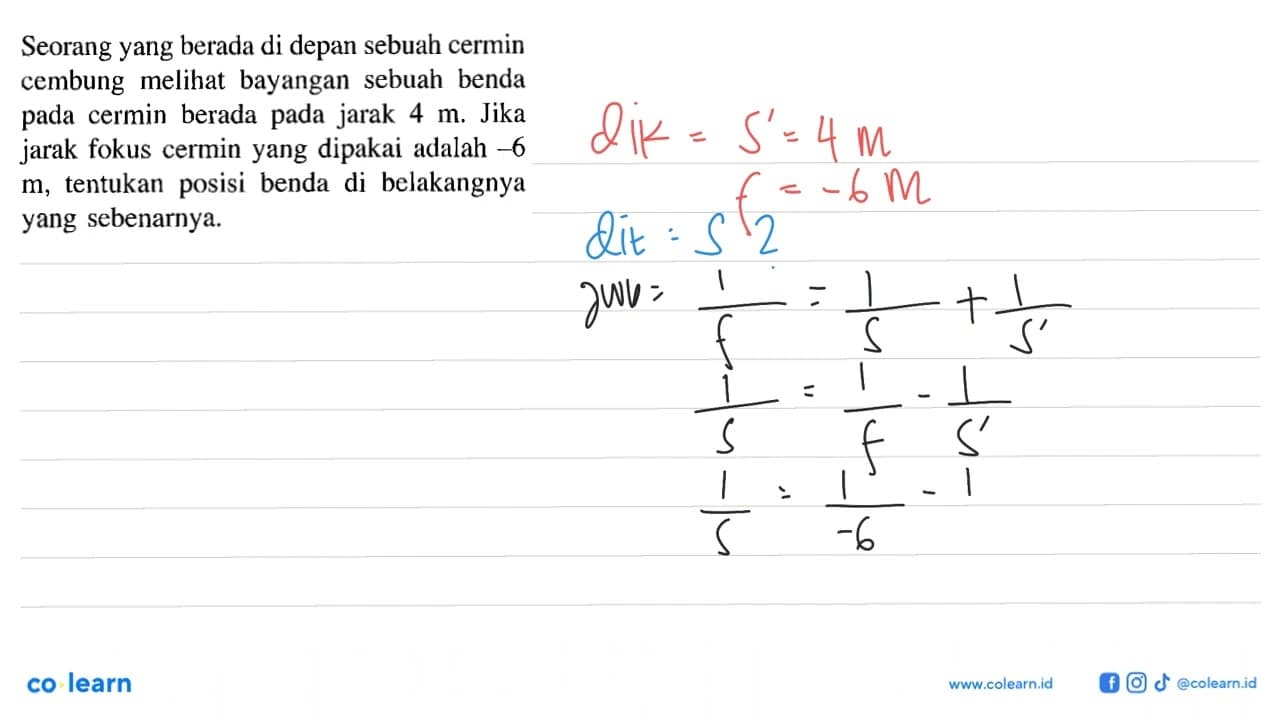 Seorang yang berada di depan sebuah cermin
cembung melihat bayangan sebuah benda
pada cermin berada pada jarak 4 m. Jika
jarak fokus cermin yang dipakai adalah –6
m, tentukan posisi benda di belakangnya
yang sebenarnya.
dik = s' = 4 m
f = -6 m
dit = s ?
jwb =
1/f = 1/s + 1/s'
1/s = 1/f - 1/s'
1/s = 1/-6 - 1
co learn
www.colearn.id
@colearn.id